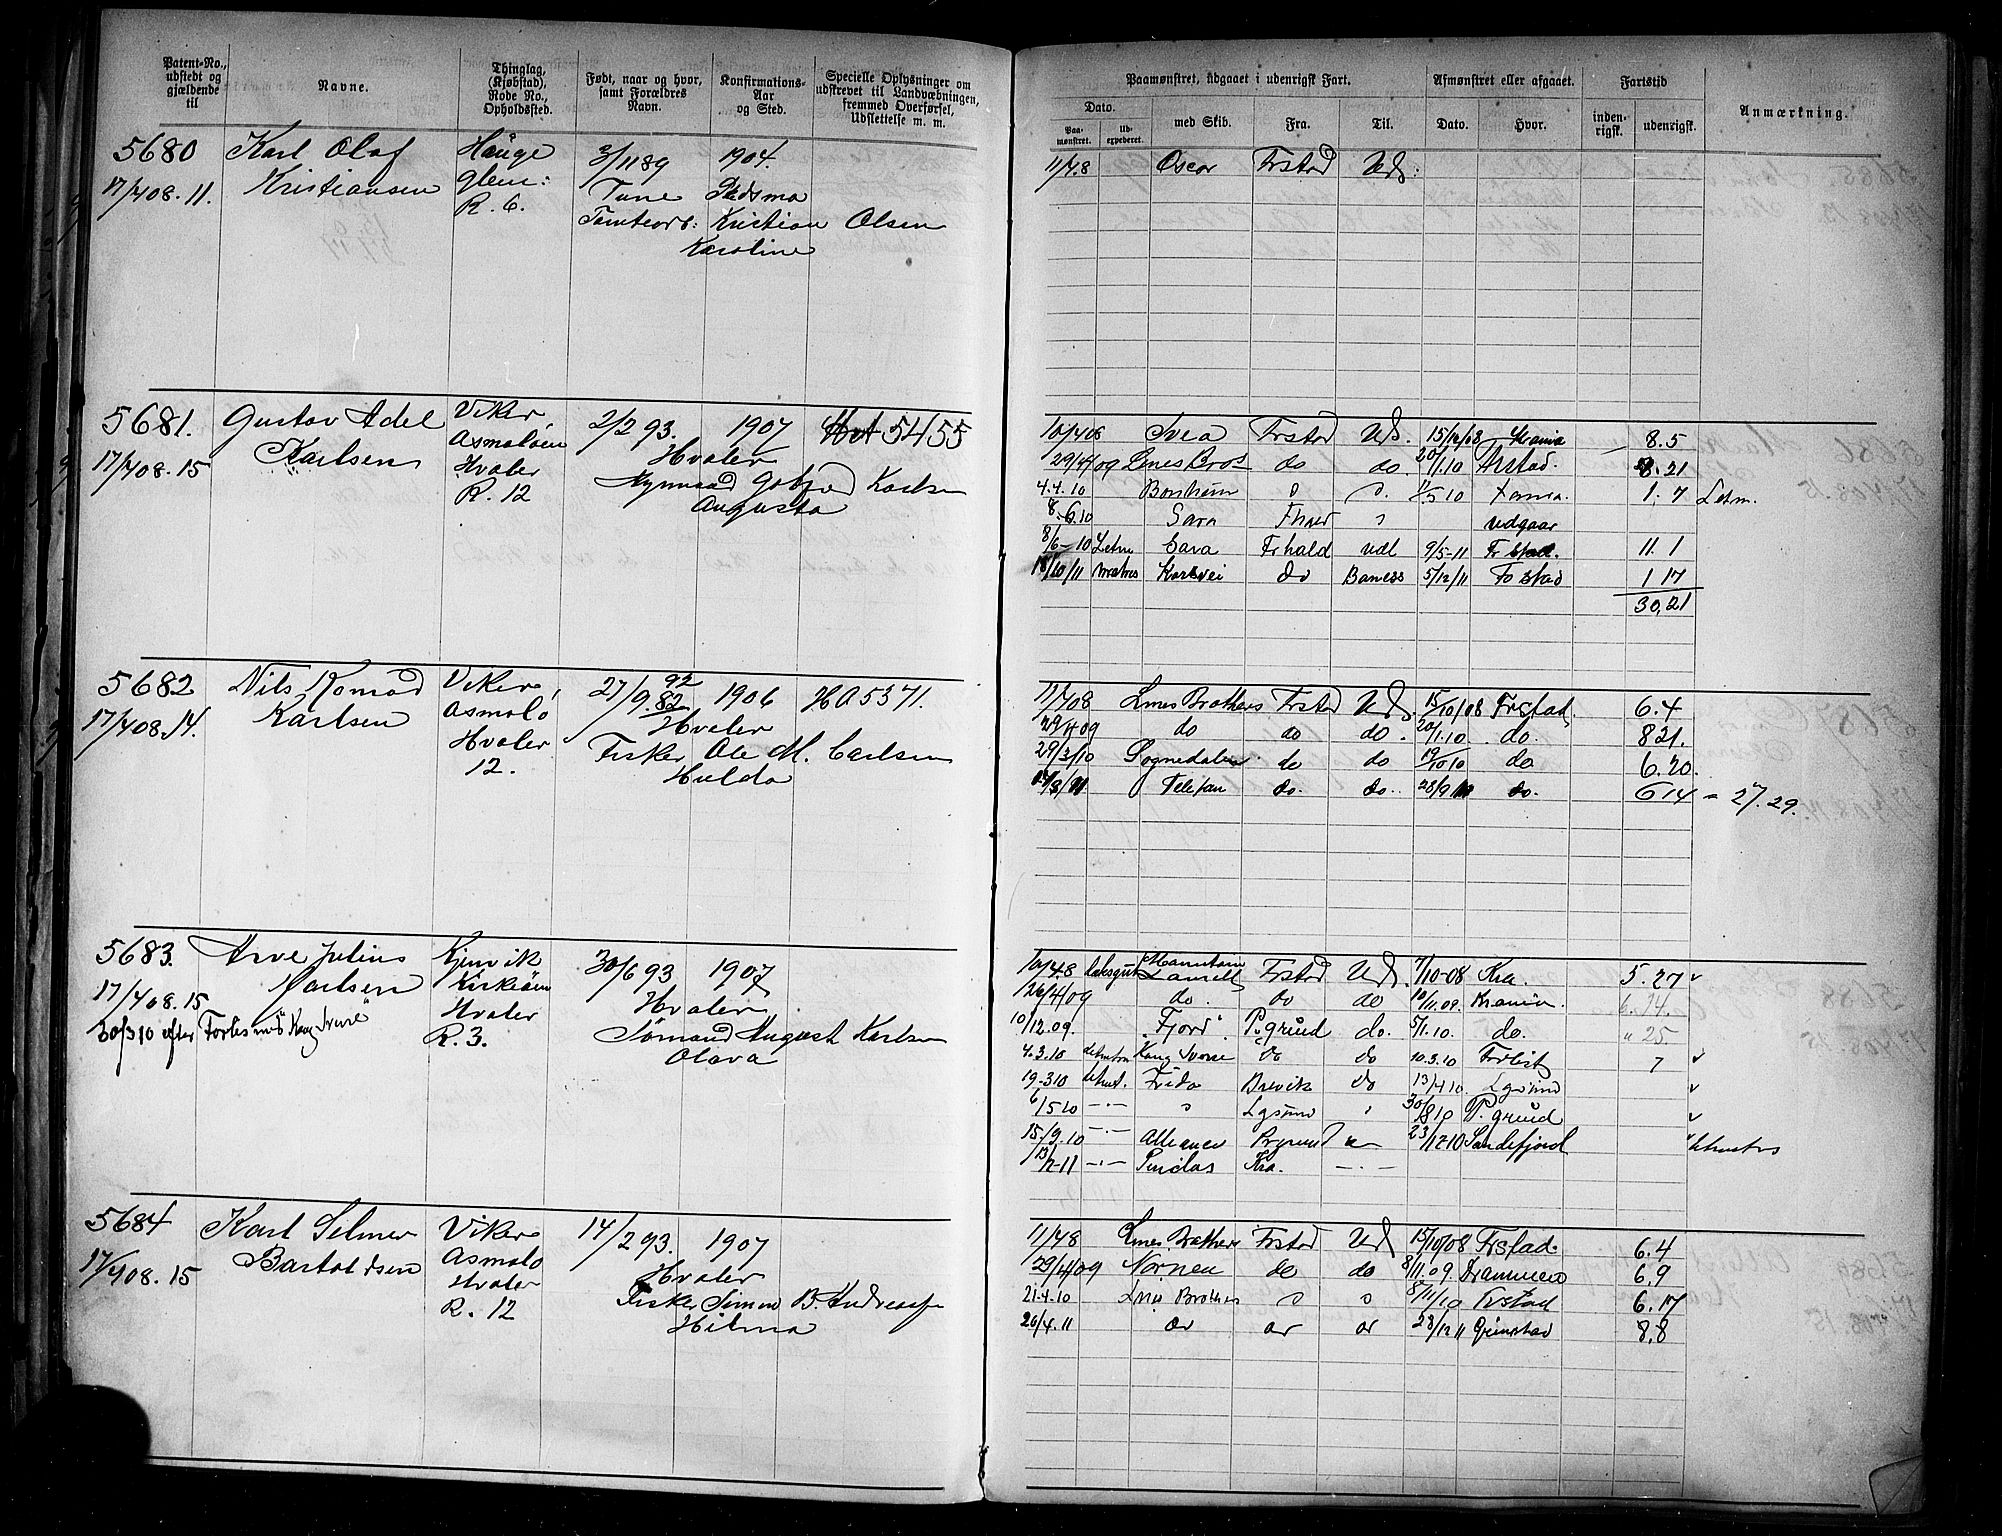 Patent-No., udstedt og gjældende til
Navne.
Thinglag, (Kjøbstad), Rode No., Opholdssted.
Født, naar og hvor, samt Forældres Navn.
Konfirmations-Aar og Sted.
Specielle Oplysninger om udskrevet til Landværnet, fremmed Overførsel, Udslettelse m. m.
Paamønstret, udgaaet i udenrigsk Fart.
Afmønstret eller afgaaet.
Fartstid
Anmærkning.
Dato.
Paa-mønstret.
Ud-expederet.
med Skib.
Fra.
Til.
Dato.
Hvor.
inden-rigsk.
udenrigsk.
5680 Karl Olaf Hauge 3/11 89 1904.
17/4 08. 11. Kristiansen Glem: Tune Pladsma
R. 6. Tomteorb: Kristian Olsen
Karoline
11/4 8 Oscar Frstad Uds.
5681. Gustav Adel Viker 2/2 93. 1907 5455
17/4 08. 15 Karlsen Asmaløen Hvaler
Hvaler Karlsen
R. 12 Augusta
10/4 08 Svea Frstad Uds. 15/12 08 Krania 8. 5
29/4 09 Lines Bros do do 20/1. 10 Frstad. 8. 21
4. 4. 10 Bonheim 11/5 10 1. 7 Letm.
8. 6. 10 Sara Fhald udgaar
8/6 - 10 Letm Sara Frhald udl 9/5 - 11 Fr stad. 11. 1
18/10/11 do 5/12/11 Frstad 1 17
30, 21
5682 Nils Konrad Viker, 27/9. 82 92 1906 HA 5371.
17/4 08. 14. Karlsen Asmalø Hvaler
Hvaler Fisker Ole M. Carlsen
12. Hulda
11/4 08 Lines Brothers Frstad Uds 15/10/08 Frstad, 6. 4
29/4 09 do do do. 20/1. 10 do. 8 21.
29/3/10 Sognedalen do do 19/10 10 do 6. 20.
do. do. 28/9 do. 6 14 = 27. 29.
5683. Arve Julius Kjenvik 30/6 93 1907
17/4 08. 15 Karlsen Kirkeøen Hvaler
30/3 10 efter Forlis med Kong Sverre Hvaler Sømand August Karlsen
R. 3. Olava
10/4 8 Frstad Uds. 7/10 - 08 Kra. 5. 27
26/4/09 do. do do 10/11. 09. Krania. 6. 14.
10/12. 09. "Fjord" P. grund do. 5/1. 10. do. " 25.
4. 3. 10 Kong Sverre do do 10. 3. 10 Forlist 7
19 - 3 10 Frida Brevik do 13/4 10. Lgsund
6/5 10 - . - " Lgsund 30/8 10 P. grund
15/9. 10 - . - Alliance 23/12 - 10 Sandefjord
13/2 - 11 - . - Pindos Kra. - . -
5684 Karl Selmer Viker 14/2 93. 1907
17/4 08. 15 Bartoldsen Asmalø Hvaler
Hvaler Fisker Simon B. Andreassen
R. 12 Hilma
11/4 8 Lines Brothers Frstad Uds 15/10/08 Frstad. 6. 4
29/4/09 Nornen do do 8/11. 09. Drammen 6. 9
21. 4. 10 Lines Brothers 8/11/10 Frstad 6. 17
26/4. 11 do do do 28/12 11 Grimstad 8. 8